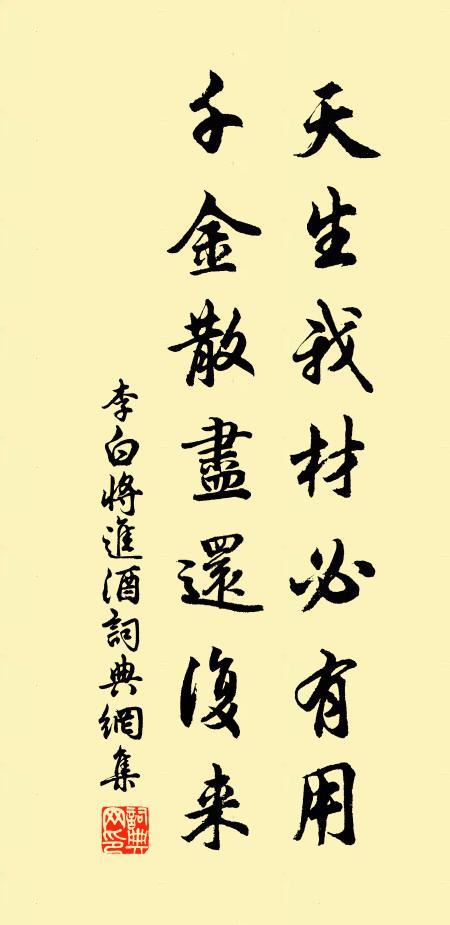 天生我材必有用
千金散盡還復来
李白將進酒詞典網集
詞典網印